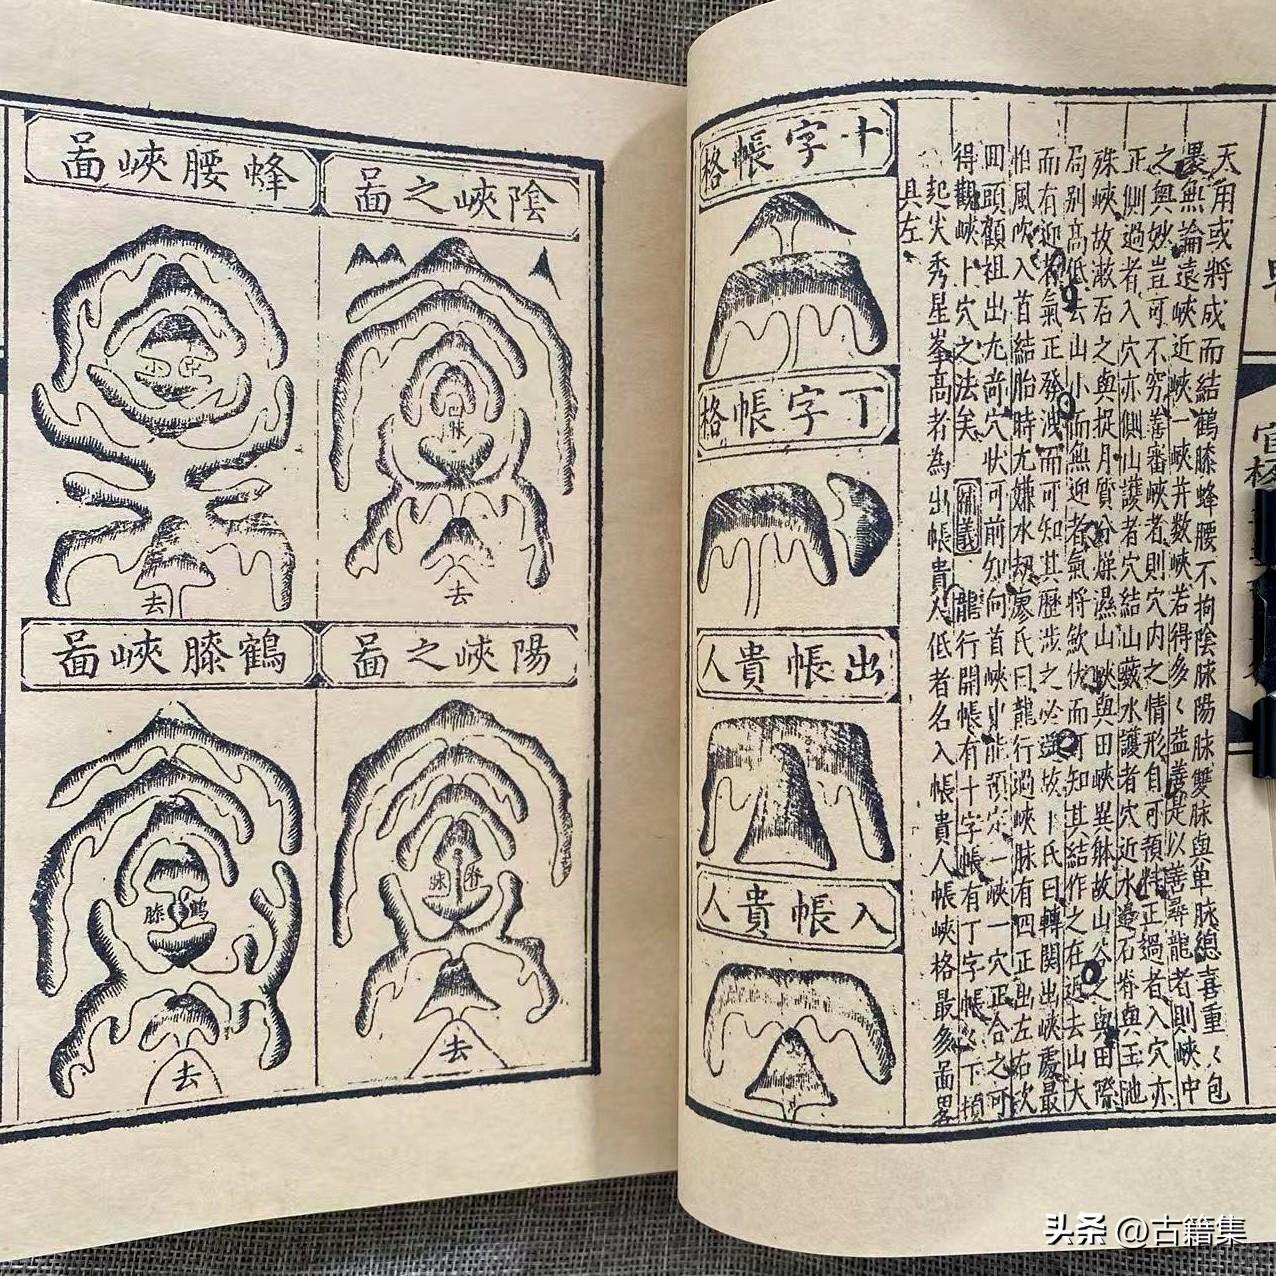 天角或將成而結鶴膝蜂腰不拘陰脉陽脉雙脉與單脉總喜重〻包
裹無論遠峽近峽一峽并数峽若得多〻益善是以善尋龍者則峽中
之奥妙豈可不窮善審峽者則穴内之情形自可預料正過者入穴亦
正側過者入穴亦側山護者穴結山巖水護者穴近水邊石脊與玉池
殊峽故濲石之與捉月質分燥濕山峽與田峽異躰故山谷之與田際
局别高低去山小而無迎者氣將歛伏而可知其結作之在近去山大
而有迎者氣正發洩而可知其歷涉之必遥故卜氏曰轉関出峽處最
怕風吹入首結胎時尤嫌水刼廖氏曰龍行過峽脉有四正出左右次
囬頭顧祖出尤竒穴状可前知向首峽中能預定一峽一穴正合之可
得觀峽卜穴之法矣 龍行開帳有十字帳有丁字帳〻下頓
起尖秀星峯高者為出帳貴人低者名入帳貴人帳峽格最多畐畧
具左
十字帳格
丁字帳格
出帳貴人
入帳貴人
陰峽之啚
脉
去
陽峽之啚
脉
去
蜂腰峽啚
去
鶴膝峽啚
鶴膝
去
头条 @古籍集